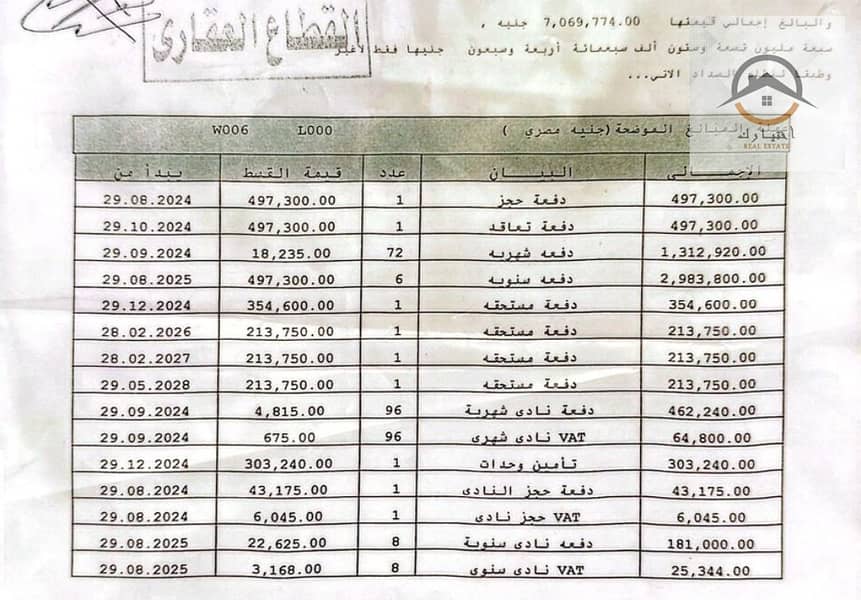 القطاع العقارى
والبالغ إجمالي قيمتها 7,069,774.00 جنيه ,
سبعة مليون تسعة وستون ألف سبعمائة أربعة وسبعون جنيها فقط لاغير
وطبقا لنظام السداد الاتي...
اختيارك
REAL ESTATE
المبالغ الموضحة (جنيه مصري ) L000 W006
الإجمـــالى البيـــان عدد قيمة القسط يبتدأ من
497,300.00 دفعة حجز 1 497,300.00 29.08.2024
497,300.00 دفعة تعاقد 1 497,300.00 29.10.2024
1,312,920.00 دفعه شهريه 72 18,235.00 29.09.2024
2,983,800.00 دفعه سنويه 6 497,300.00 29.08.2025
354,600.00 دفعة مستحقه 1 354,600.00 29.12.2024
213,750.00 دفعة مستحقه 1 213,750.00 28.02.2026
213,750.00 دفعة مستحقه 1 213,750.00 28.02.2027
213,750.00 دفعة مستحقه 1 213,750.00 29.05.2028
462,240.00 دفعة نادى شهرية 96 4,815.00 29.09.2024
64,800.00 VAT نادى شهرى 96 675.00 29.09.2024
303,240.00 تأمين وحدات 1 303,240.00 29.12.2024
43,175.00 دفعة حجز النادى 1 43,175.00 29.08.2024
6,045.00 VAT حجز نادى 1 6,045.00 29.08.2024
181,000.00 دفعه نادى سنوية 8 22,625.00 29.08.2025
25,344.00 VAT نادى سنوى 8 3,168.00 29.08.2025